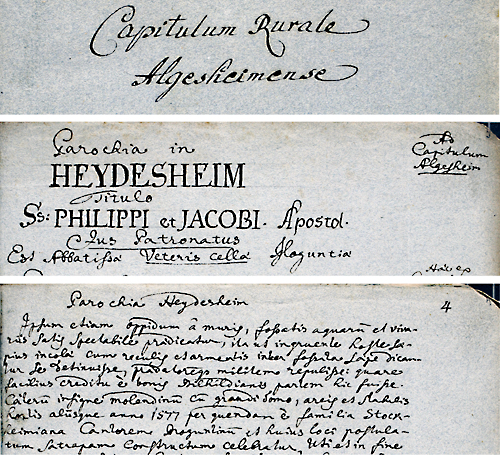 Capitulum Rurale
Algesheimense
Parochia in
HEYDESHEIM
Titulo
Ss: PHILIPPI et JACOBI. Apostol.
Jus Patronatus
Est Abbatissa Veteris cella Moguntia
Ad
Capitulum
Algesheim
Parochia Heydesheim
4
Ipsum etiam oppidum à muris, fossatis aquarum et
satis spectabile prædicatur, ita ut ingruente
incolæ cum et armentis inter fossata
se militem repulisse: quare
facilius creditu è bonis partem hic fuisse.
Cæterum insigne molendinum cū grandi domo, areis et stabulis
hortis alijsque anno 1577 per quendam è familia Stock-
heimiana Cantorem Moguntinum et huius loci
satrapam constructum celebratur, Uti et in fine